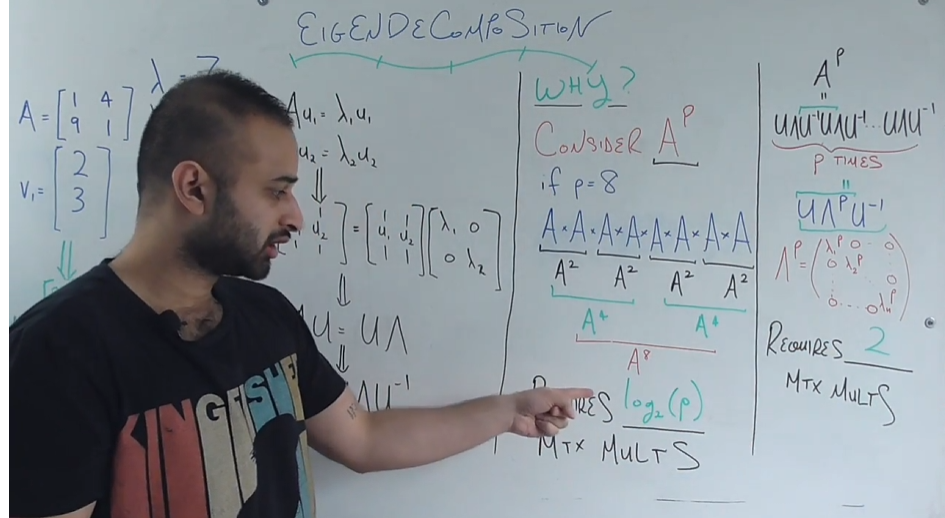 EIGENDECOMPOSITION
A = [1 4
9 1]
λ = 7
V₁ = [2
3]
Au₁ = λ₁u₁
u₂ = λ₂u₂
⇓
u₂] = [u₁ u₂] [λ₁ 0
0 λ₂]
⇓
U = UΛ
⇓
ΛU⁻¹
KINGFISHER
WHY?
CONSIDER Aᴾ
if p=8
A×A×A×A×A×A×A×A
A² A² A² A²
A⁴ A⁴
A⁸
log₂(p)
MTX MULTS
Aᴾ
=
UΛU⁻¹UΛU⁻¹...UΛU⁻¹
P TIMES
=
UΛᴾU⁻¹
Λᴾ = (λ₁ᴾ 0 ·· 0
0 λ₂ᴾ
0
0 .... 0 λₙᴾ)
REQUIRES 2
MTX MULTS